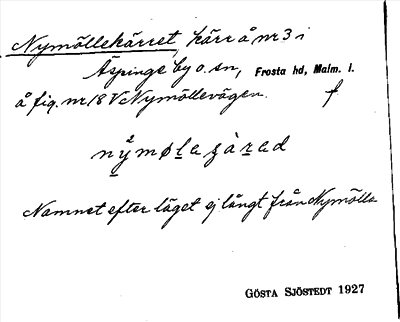 Nymöllekärret, kärr å nr 3 i
Äspinge by o. sn, Frosta hd, Malm. l.
å fig. nr 18 V Nymöllevägen. f.
Namnet efter läget ej långt från Nymölla
GÖSTA SJÖSTEDT 1927